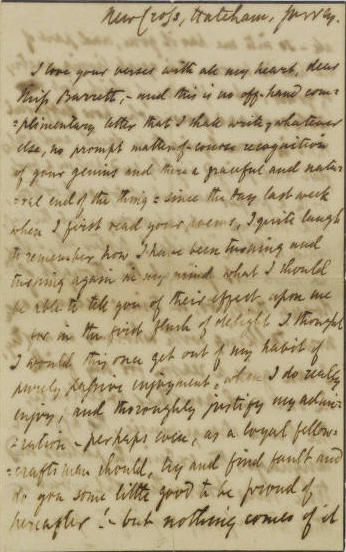 New Cross, Hatcham, Surrey.
I love your verses with all my heart, dear
Miss Barrett, - and this is no off-hand com=
=plimentary letter that I shall write, - whatever
else, no prompt matter-of-course recognition
of your genius and there a graceful and natu=
=ral end of the thing: since the day last week
when I first read your poems, I quite laugh
to remember how I have been turning and
turning again in my mind what I should
be able to tell you of their effect upon me -
for in the first flush of delight I thought
I would this once get out of my habit of
purely passive enjoyment, when I do really
enjoy, and thoroughly justify my admi=
=ration - perhaps even, as a loyal fellow=
=craftsman should, try and find fault and
do you some little good to be proud of
hereafter! - but nothing comes of it